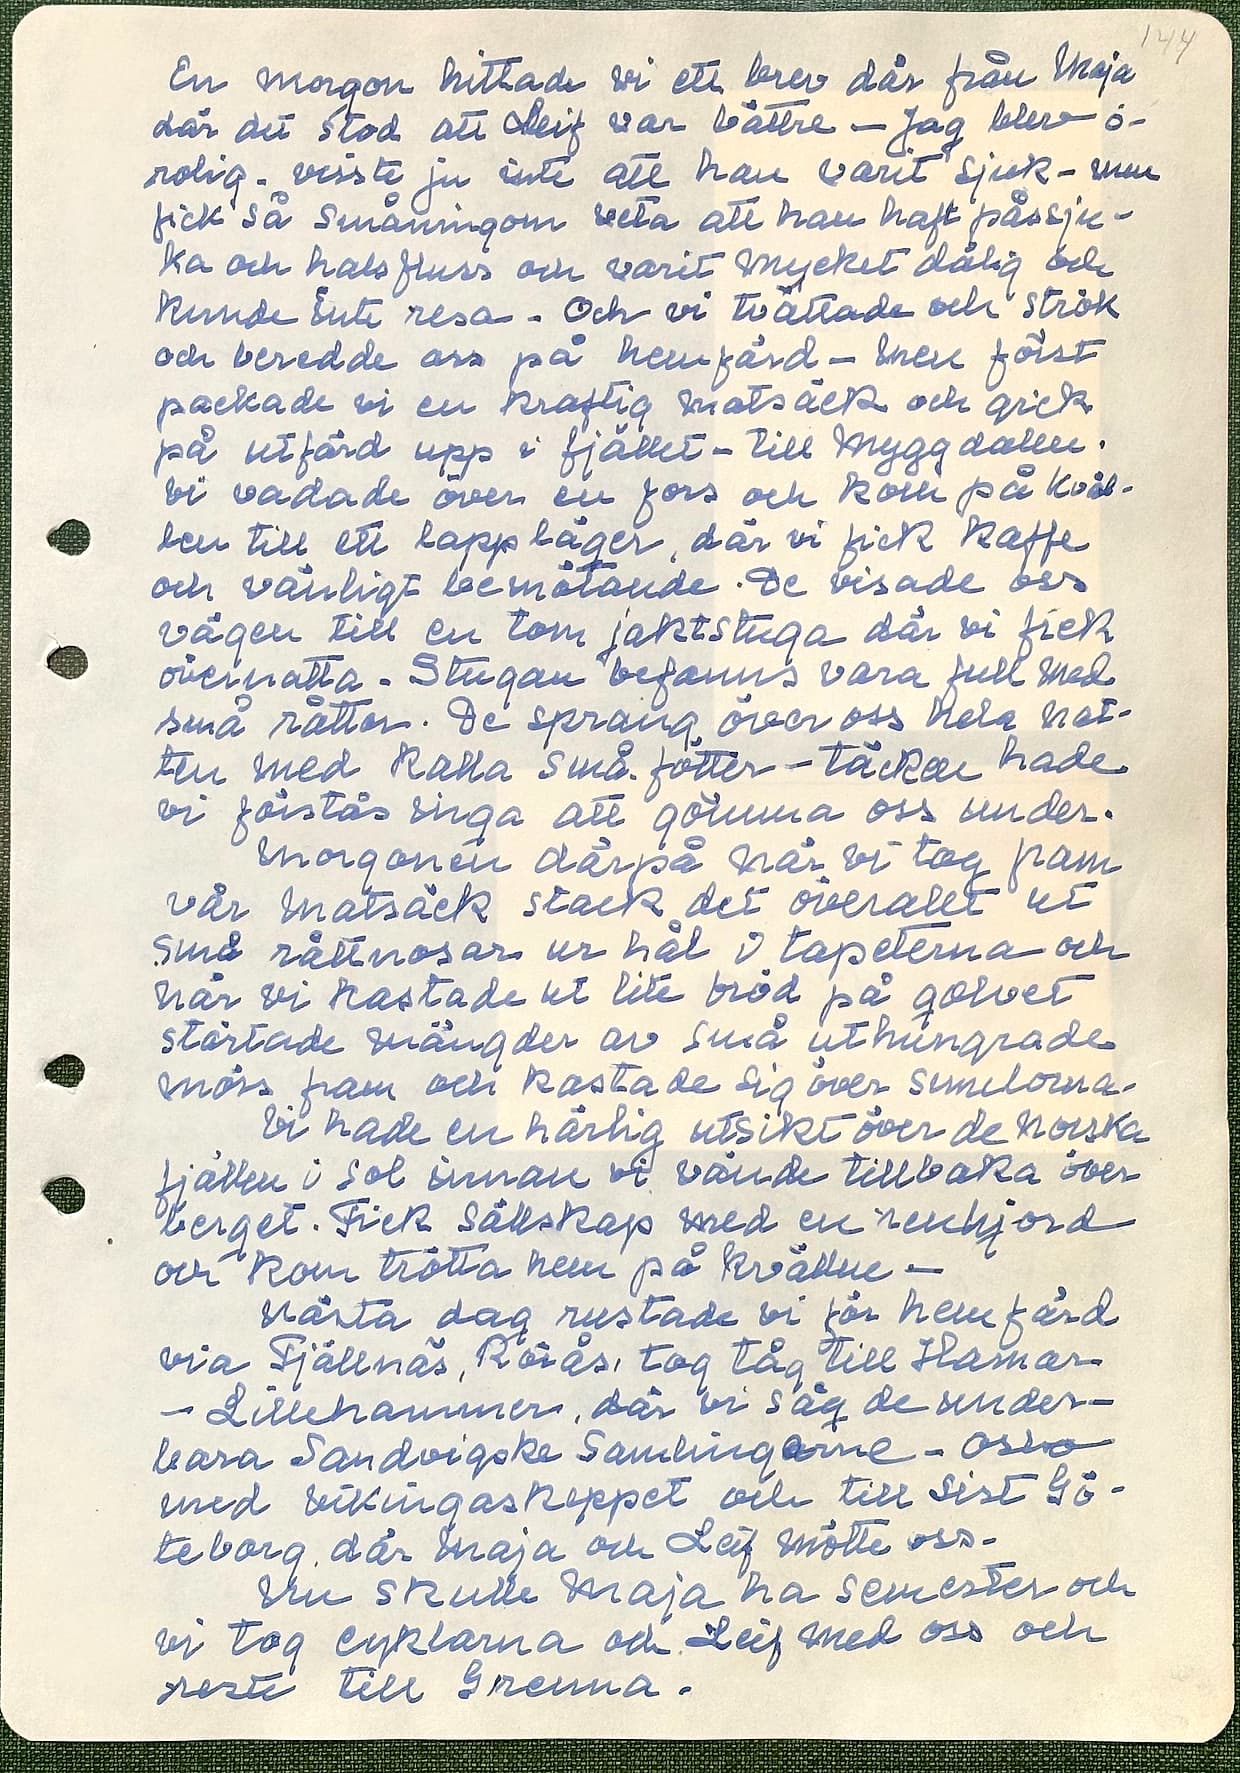 144
En morgon hittade vi ett brev där från Maja
där det stod att Leif var bättre – Jag blev o-
rolig. visste ju inte att han varit sjuk – men
fick så småningom veta att han haft påssju-
ka och halsfluss och varit mycket dålig och
kunde inte resa. Och vi tvättade och strök
och beredde oss på hemfärd – men först
packade vi en kraftig matsäck och gick
på utfärd upp i fjället – till Myggdalen.
Vi vadade över en fors och kom på kväl-
len till ett lappläger, där vi fick kaffe
och vänligt bemötande. De visade oss
vägen till en tom jaktstuga där vi fick
övernatta. Stugan befanns vara full med
små råttor. De sprang över oss hela nat-
ten med kalla små fötter – täcken hade
vi förstås inga att gömma oss under.
Morgonen därpå när vi tog fram
vår matsäck stack det överallt ut
små råttnosar ur hål i tapeterna och
när vi kastade ut lite bröd på golvet
störtade mängder av små uthungrade
möss fram och kastade sig över smulorna.
Vi hade en härlig utsikt över de norska
fjällen i sol innan vi vände tillbaka över
berget. Fick sällskap med en renhjord
och kom trötta hem på kvällen –
Nästa dag rustade vi för hemfärd
via Fjällnäs, Rörås, tog tåg till Hamar
– Lillehammer, där vi såg de under-
bara Sandvigske Samlingerne – Oslo
med vikingaskeppet och till sist Gö-
teborg, där Maja och Leif mötte oss.
Nu skulle Maja ha semester och
vi tog cyklarna och Leif med oss och
reste till Grenna.